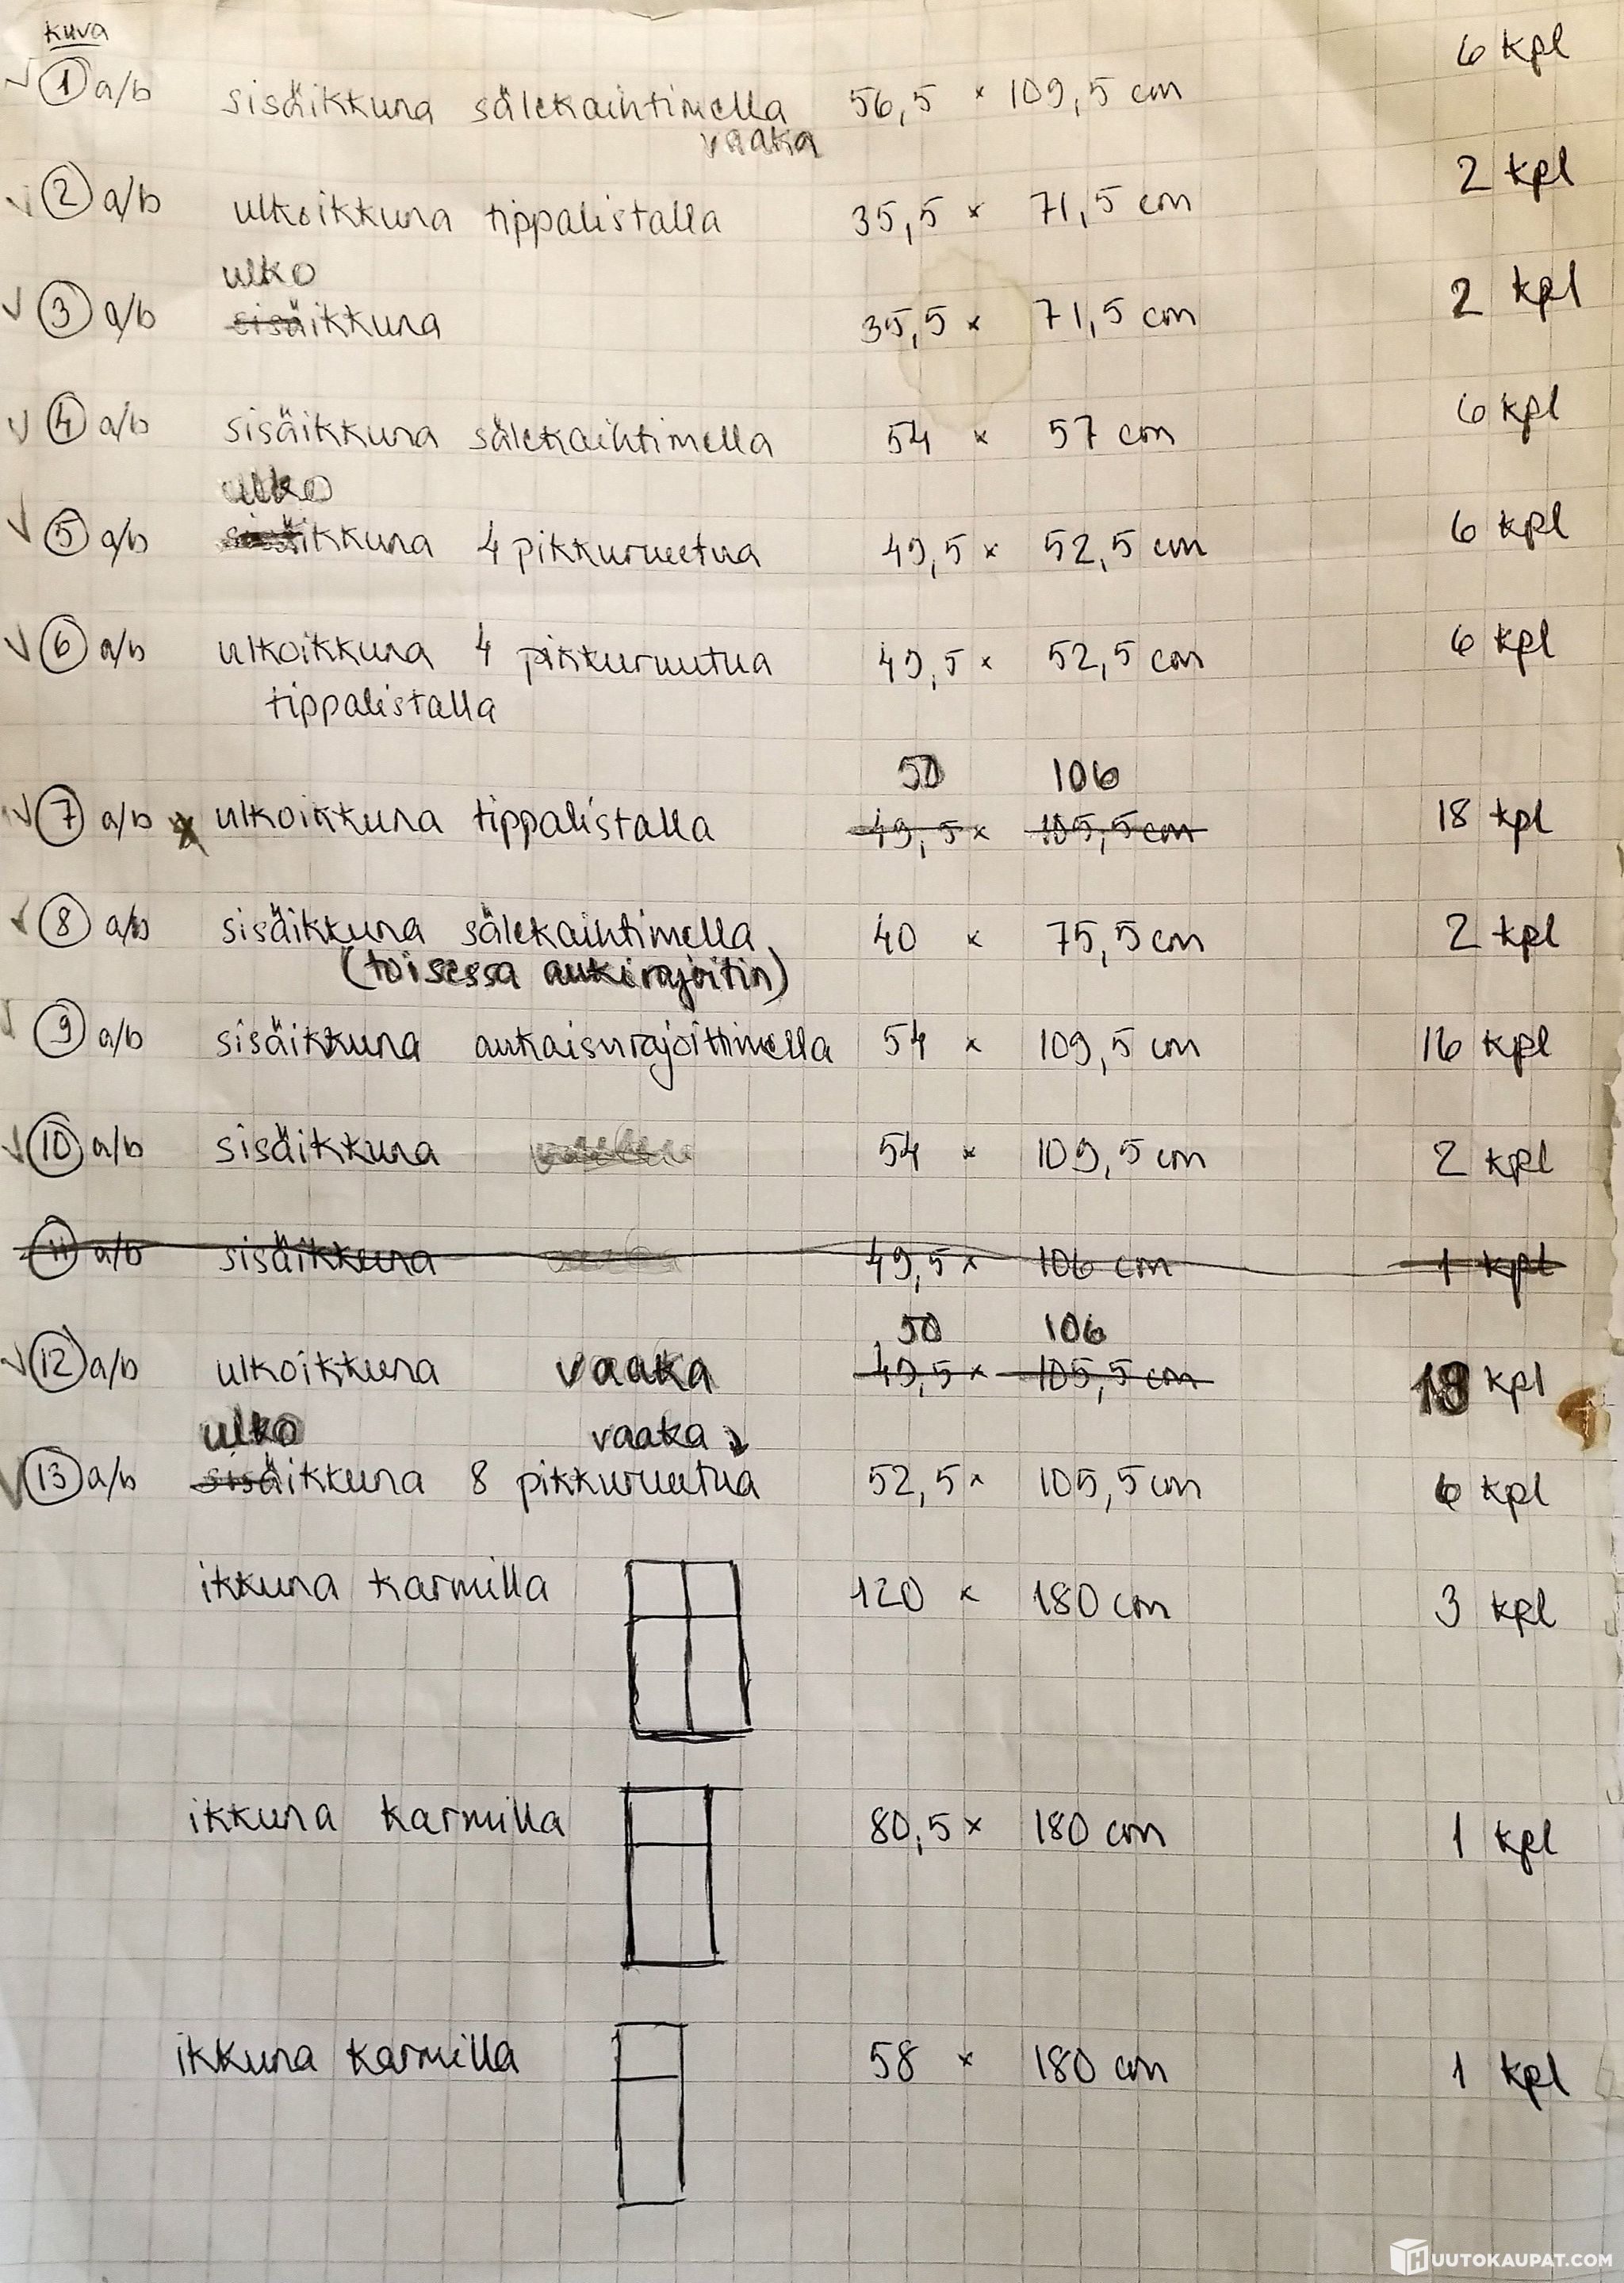 kuva
1 a/b sisäikkuna sälekaihtimella 56,5 × 109,5 cm 6 kpl
vaaka
2 a/b ulkoikkuna tippalistalla 35,5 × 71,5 cm 2 kpl
ulko
3 a/b sisäikkuna 35,5 × 71,5 cm 2 kpl
4 a/b sisäikkuna sälekaihtimella 54 × 57 cm 6 kpl
ulko
5 a/b sisäikkuna 4 pikkuruutua 49,5 × 52,5 cm 6 kpl
6 a/b ulkoikkuna 4 pikkuruutua 49,5 × 52,5 cm 6 kpl
tippalistalla
50 106
7 a/b x ulkoikkuna tippalistalla 49,5 × 105,5 cm 18 kpl
8 a/b sisäikkuna sälekaihtimella 40 × 75,5 cm 2 kpl
(toisessa aukirajoitin)
9 a/b sisäikkuna aukaisurajoittimella 54 × 109,5 cm 16 kpl
10 a/b sisäikkuna 54 × 109,5 cm 2 kpl
11 a/b sisäikkuna 49,5 × 106 cm 1 kpl
50 106
12 a/b ulkoikkuna vaaka 49,5 × 105,5 cm 18 kpl
ulko vaaka
13 a/b sisäikkuna 8 pikkuruutua 52,5 × 105,5 cm 6 kpl
ikkuna karmilla 120 × 180 cm 3 kpl
ikkuna karmilla 80,5 × 180 cm 1 kpl
ikkuna karmilla 58 × 180 cm 1 kpl
HUUTOKAUPAT.COM